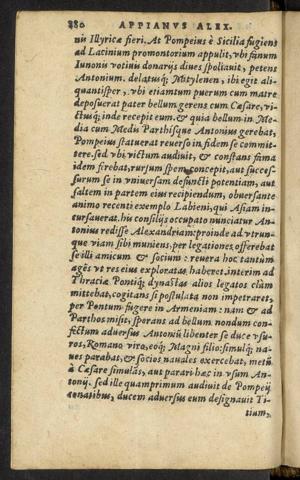 380 APPIANVS ALEX.
nis Illyricæ fieri. At Pompeius è Sicilia fugiens
ad Lacinium promontorium appulit, vbi fanum
Iunonis votiuis donarijs diues spoliauit, petens
Antonium. delatusq́; Mitylenen, ibi egit ali-
quantisper, vbi etiamtum puerum cum matre
deposuerat pater bellum gerens cum Cæsare, vi-
ctusq́; inde recepit eum. & quia bellum in Me-
dia cum Medis Parthisque Antonius gerebat,
Pompeius statuerat reuerso in fidem se commit-
tere. sed vbi victum audiuit, & constans fama
idem firebat, rursum spem concepit, aut succes-
surum se in vniuersam defuncti potentiam, aut
saltem in partem eius recipiendum, obuersante
animo recenti exemplo Labieni, qui Asiam in-
cursauerat. his consilijs occupato nunciatur An-
tonius redisse Alexandriam: proinde ad vtrun-
que viam sibi muniens, per legationes offerebat
se illi amicum & socium: reuera hoc tantùm
agēs vt res eius exploratas haberet. interim ad
Thraciæ Pontiq́; dynastas alios legatos clàm
mittebat, cogitans si postulata non impetraret,
per Pontum fugere in Armeniam: nam & ad
Parthos misit, sperans ad bellum nondum con-
fectum aduersus Antoniū libenter se duce vsu-
ros, Romano viro, eoq́; Magni filio: simulq́; na-
ues parabat, & socios nauales exercebat, metū
à Cæsare simulās, aut parari hæc in vsum An-
tonij. sed ille quamprimum audiuit de Pompeij
conatibus, ducem aduersus eum designauit Ti-
tium,